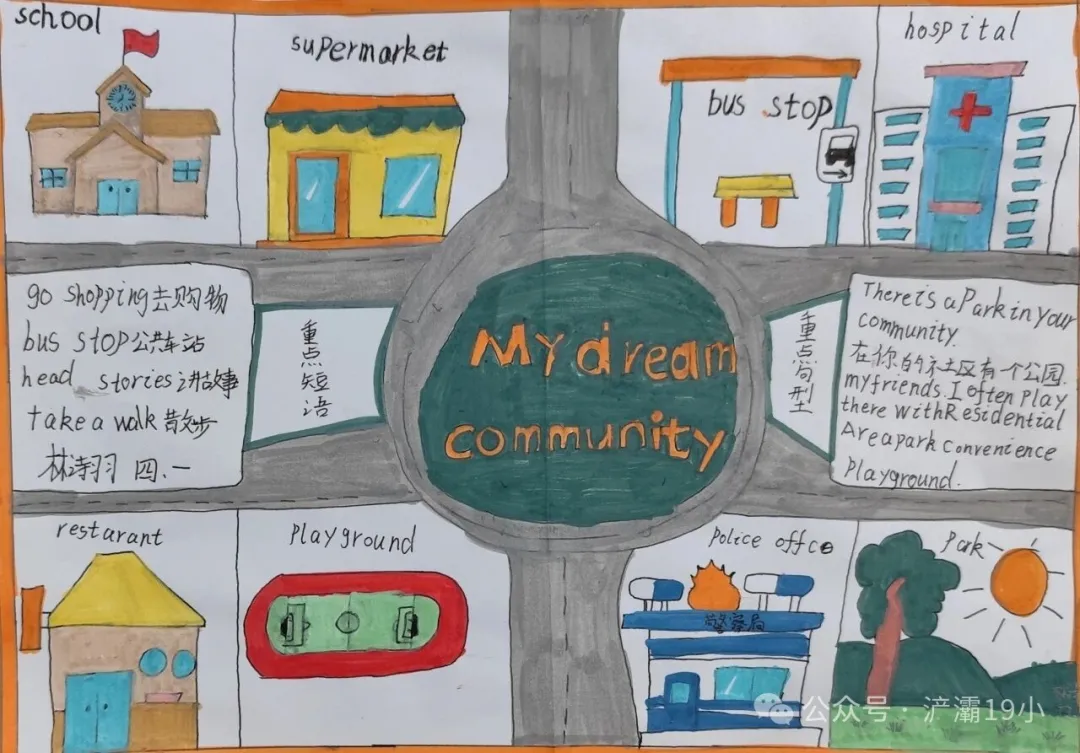 school
supermarket
bus stop
hospital
go shopping去购物
bus stop公共车站
head stories讲故事
take a walk 散步
林诗羽 四.一
重点短语
My dream
community
重点句型
There is a Park in your
community.
在你的社区有一个公园.
my friends. I often play
there with Residential
Area park convenience
playground.
restarant
Playground
Police offce
警察局
Park
公众号 · 浐灞19小